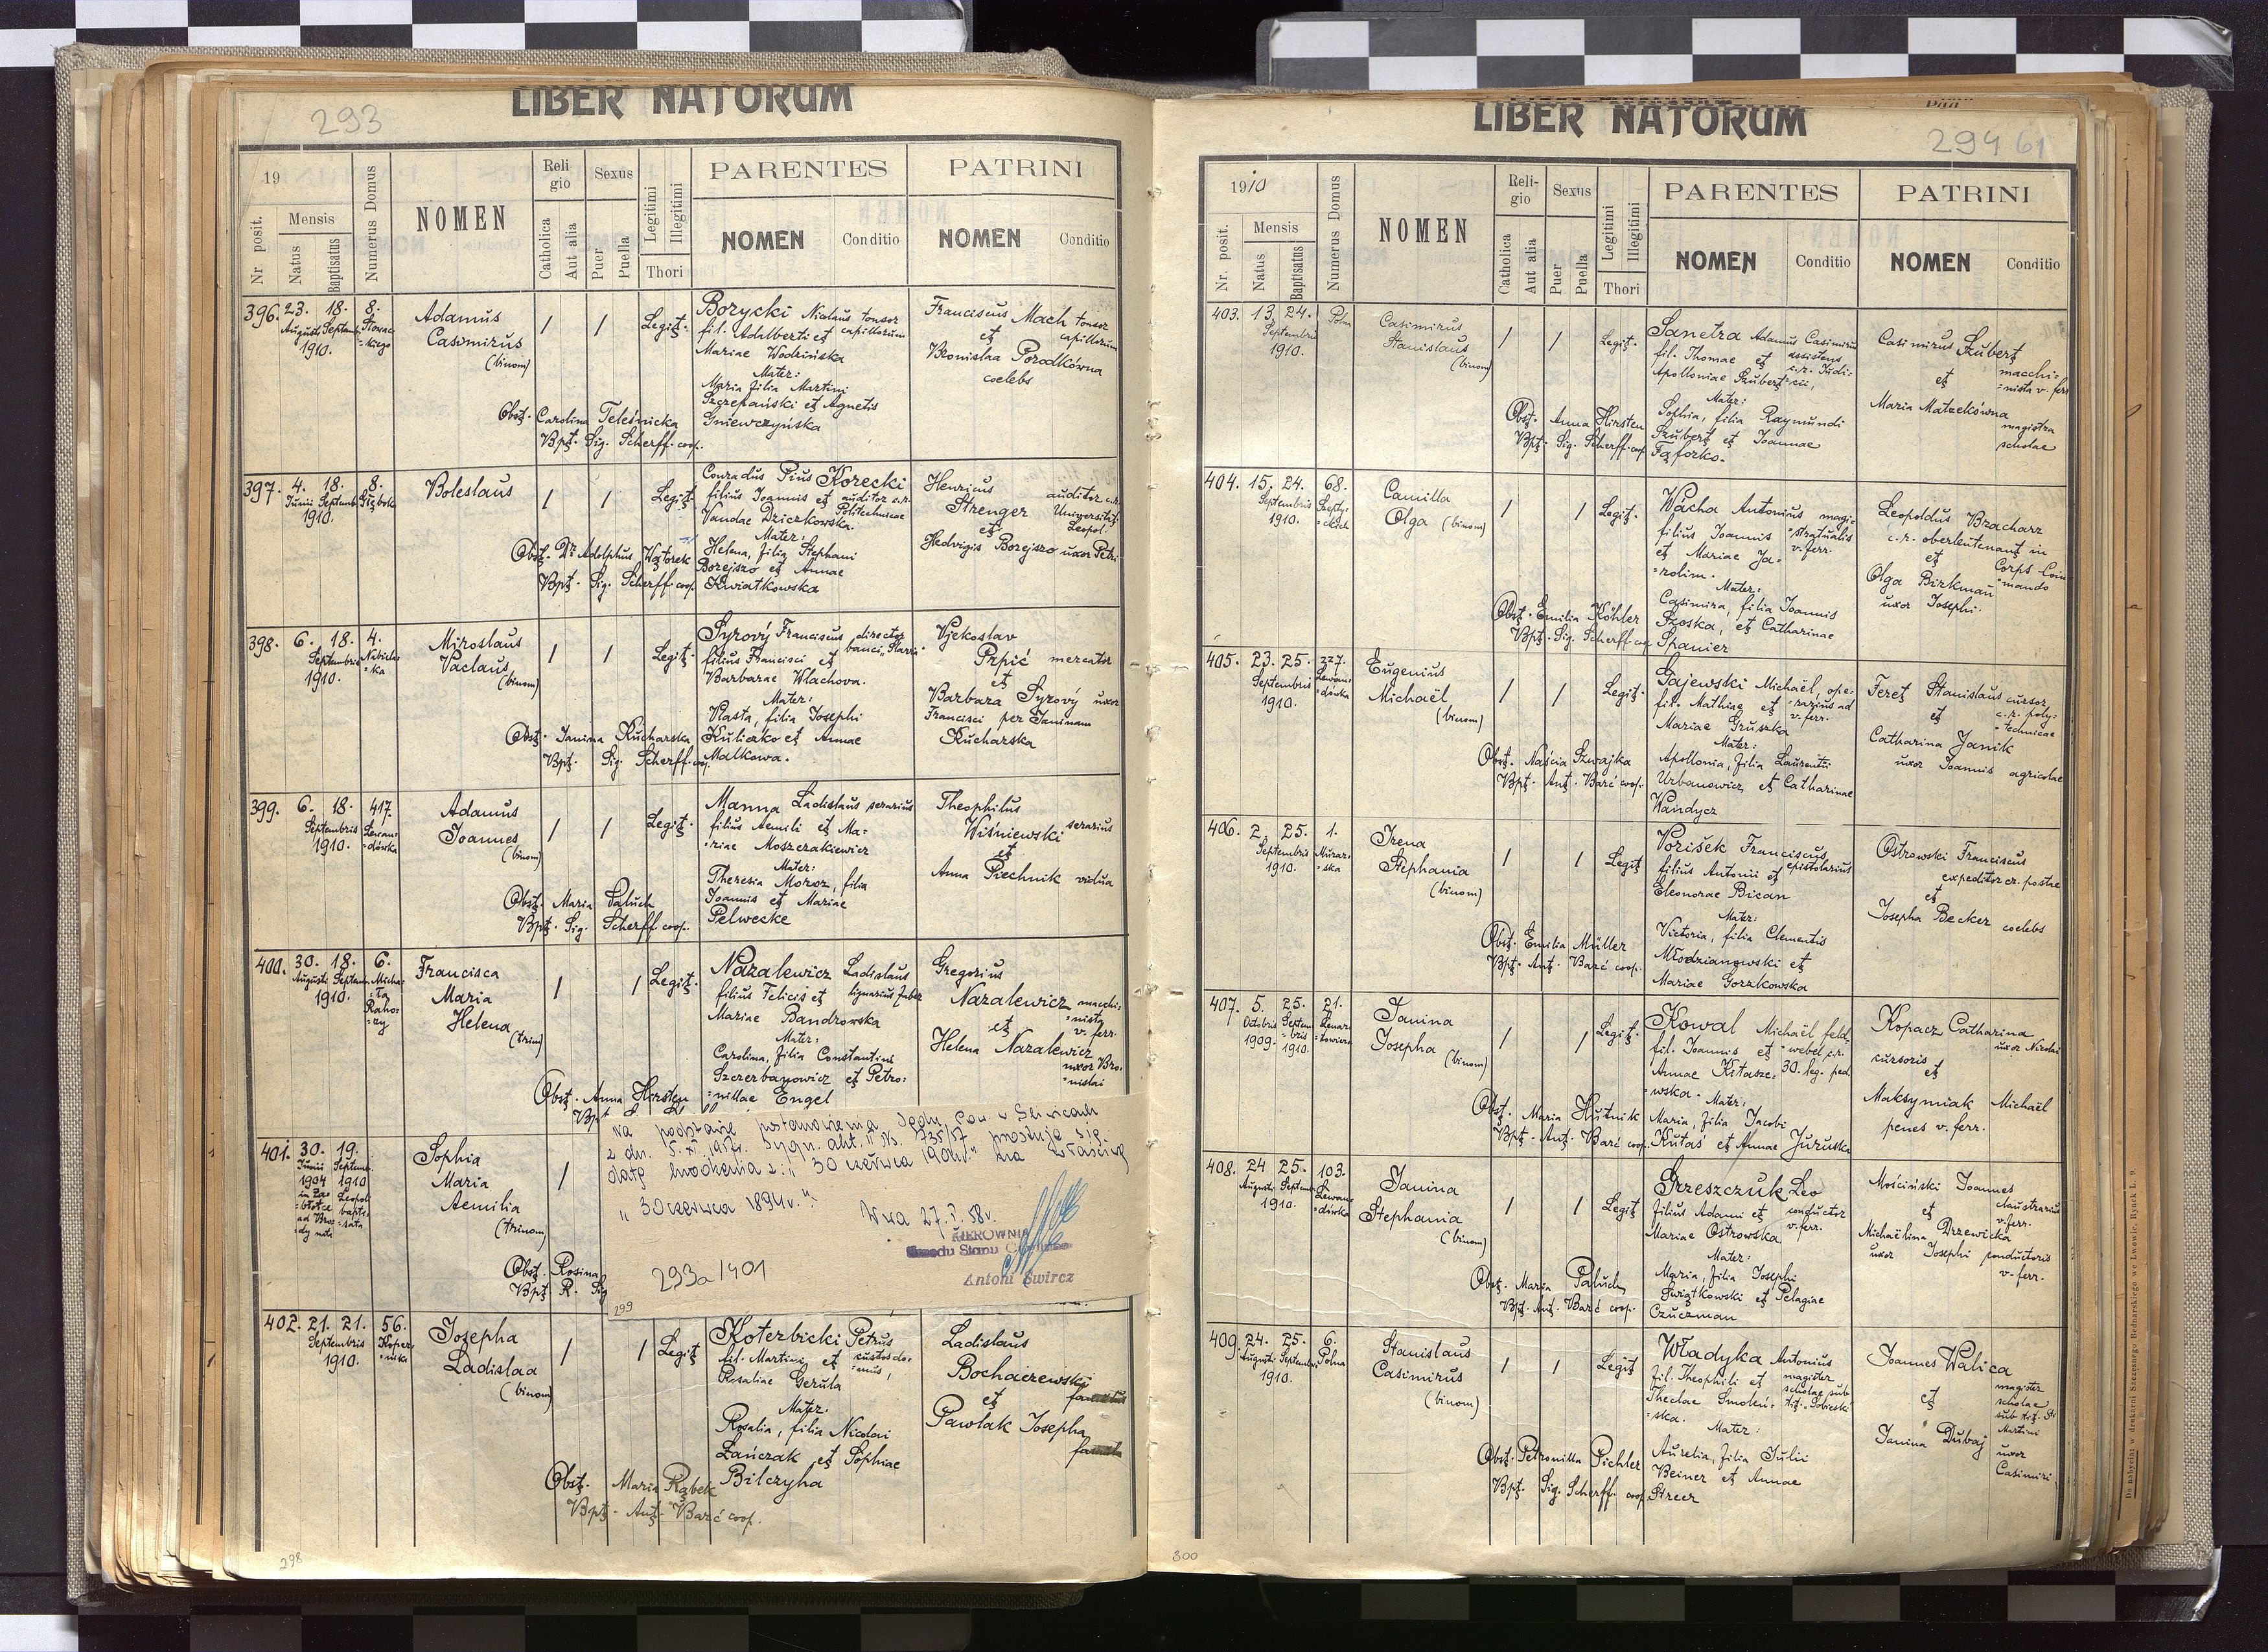 LIBER NATORUM
293
19
Nr. posit.
Mensis
Natus
Baptisatus
Numerus Domus
NOMEN
Religio
Catholica
Aut alia
Sexus
Puer
Puella
Legitimi
Illegitimi
Thori
PARENTES
NOMEN
Conditio
PATRINI
NOMEN
Conditio
396. 23. 18. 8.
Augusti Septemb. Słowackiego
1910.
Adamus
Casimirus
(binom)
/ / Legit.
Borycki Nicolaus tonsor
fil. Adalberti et capillorum
Mariae Wodzińska
Mater:
Maria filia Martini
Szczepański et Agnetis
Gniewczyńska
Franciscus Mach tonsor
et capillorum
Bronislaa Porodkówna
coelebs
Obst. Carolina Teleśnicka
Bpt. Sig. Scherff coop.
397. 4. 18. 8.
Junii Septemb.
1910.
Boleslaus
/ / Legit.
Conradus Pius Korecki
filius Joannis et auditor c.r.
Vandae Dziczkowska. Politechnicae
Mater:
Helena, filia Stephani
Borejszo et Annae
Kwiatkowska
Henricus auditor c.r.
Strenger Universitat.
et Leopol.
Hedvigis Borejszo uxor Petri
Obst. Dr Adolphus Wątorek
Bpt. Sig. Scherff coop.
398. 6. 18. 4.
Septembris Nabielaka
1910.
Miroslaus
Vaclaus
(binom)
/ / Legit.
Syrový Franciscus, director
filius Francisci et banci "Slavia"
Barbarae Wlachova.
Mater:
Vlasta, filia Josephi
Kuliczko et Annae
Malkowa.
Vjekoslav
Prpić mercator
et
Barbara Syrový uxor
Francisci per Janinam
Kucharska
Obst. Janina Kucharska
Bpt. Sig. Scherff coop.
399. 6. 18. 417.
Septembris Lewandówka
1910.
Adamus
Joannes
(binom)
/ / Legit.
Manna Ladislaus serarius
filius Aemili et Mariae
Moszczakiewicz
Mater:
Theresia Moroz, filia
Joannis et Mariae
Pelwecke
Theophilus
Wiśniewski serarius
et
Anna Piechnik vidua
Obst. Maria Paluch
Bpt. Sig. Scherff coop.
400. 30. 18. 6.
Augusti Septem.
1910.
Francisca
Maria
Helena
(trin)
/ / Legit.
Nazalewicz Ladislaus
filius Felicis et lignarius faber
Mariae Bandrowska
Mater:
Carolina, filia Constantini
Szczerbanowicz et Petronillae
Engel
Gregorius
Nazalewicz macchinista
et v. ferr.
Helena Nazalewicz
uxor Bronislai
Obst. Anna Hirsten
Bpt
401. 30. 19.
Junii Septemb.
1904 1910
Sophia
Maria
Aemilia
(trinom)
/
Obst. Rosina
Bpt. R. Sig
Na podstawie postanowienia Sądu Pow. w Gliwicach
z dn. 5. XI. 1957r. Sygn. akt. "Ns. 735/57" prostuje się
datę urodzenia z: "30 czerwca 1904r." na właściwą
"30 czerwca 1894r."
W-wa 27. I. 58r.
KIEROWNIK
Urzędu Stanu Cywilnego
Antoni Śwircz
293a/401
299
402. 21. 21. 56.
Septembris Kopernika
1910.
Josepha
Ladislaa
(binom)
/ / Legit
Koterbicki Petrus
fil. Martini et custos domus,
Rosaliae Gerula
Mater:
Rosalia, filia Nicolai
Łańczak et Sophiae
Bilczyha
Ladislaus
Bochaczewski
et
Pawlak Josepha
Obst. Maria Rąbek
Bpt. Ant. Barć coop.
298
LIBER NATORUM
294 61
1910
Nr. posit.
Mensis
Natus
Baptisatus
Numerus Domus
NOMEN
Religio
Catholica
Aut alia
Sexus
Puer
Puella
Legitimi
Illegitimi
Thori
PARENTES
NOMEN
Conditio
PATRINI
NOMEN
Conditio
403. 13. 24. Polna
Septembris
1910.
Casimirus
Stanislaus
(binom)
/ / Legit.
Sanetra Adamus Casimirus
fil. Thomae et assistens
Apolloniae Szubert c.r. Judicii,
Mater:
Sophia, filia Raymundi
Szubert et Joannae
Fąforko.
Casimirus Szubert
macchinista v. ferr
et
Maria Matzekówna
magistra
scholae
Obst. Anna Hirsten
Bpt. Sig. Scherff coop
404. 15. 24. 68.
Septembris
1910.
Camilla
Olga (binom)
/ / Legit.
Wacha Antonius magistratualis
filius Joannis v. ferr.
et Mariae Jarolim.
Mater:
Casimira, filia Joannis
Szoska, et Catharinae
Spanier
Leopoldus Bracharz
c.r. oberleutenant in
et Corps Commando
Olga Birkman
uxor Josephi.
Obst. Emilia Köhler
Bpt. Sig. Scherff coop
405. 23. 25. 227.
Septembris Lewandówka
1910.
Eugenius
Michaël
(binom)
/ / Legit.
Gajewski Michaël, operarius ad
fil. Mathiae et v. ferr.
Mariae Gruszka
Mater:
Apollonia, filia Laurentii
Urbanowicz et Catharinae
Wandycz
Feret Stanislaus cursor
et c.r. polytechnicae
Catharina Janik
uxor Joannis agricolae
Obst. Naścia Szwajka
Bpt. Ant. Barć coop.
406. 2. 25. 1.
Septembris Murarska
1910.
Irena
Stephania
(binom)
/ / Legit
Vorišek Franciscus,
filius Antonii et epistolarius
Eleonorae Bican
Mater:
Victoria, filia Clementis
Młodzianowski et
Mariae Gorzkowska
Ostrowski Franciscus
expeditor c.r. postae
et
Josepha Becker coelebs
Obst. Emilia Müller
Bpt. Ant. Barć coop.
407. 5. 25. 21.
Octobris Septembris Lenartowicza
1909. 1910.
Janina
Josepha
(binom)
/ / Legit.
Kowal Michaël, feldwebel c.r.
fil. Joannis et 30. Reg. ped
Annae Kitaszewska.
Mater:
Maria, filia Jacobi
Kutaś et Annae Juruska
Kopacz Catharina
uxor Nicolai
cursoris
et
Maksymiak Michaël
penes v. ferr.
Obst. Maria Hutnik
Bpt. Ant. Barć coop.
408. 24 25. 103.
Augusti Septemb. Lewandówka
1910.
Janina
Stephania
(binom)
/ / Legit
Grzeszczuk Leo
filius Adami et conductor
Mariae Ostrowska v. ferr.
Mater:
Maria, filia Josephi
Świątkowski et Pelagiae
Czuczman
Mościński Joannes
claustrarius
et v. ferr.
Michaëlina Drzewicka
uxor Josephi conductoris
v. ferr.
Obst. Maria Paluch
Bpt. Ant. Barć coop.
409. 24. 25. 6.
Augusti Septembris Polna
1910.
Stanislaus
Casimirus
(binom)
/ / Legit
Władyka Antonius
fil. Theophili et magister
Theclae Smoleńska. scholae sub tit. Sobieski
Mater:
Aurelia, filia Julii
Beiner et Annae
Streer
Joannes Walica
magister
et scholae
sub tit. St
Martini
Janina Dubaj uxor
Casimiri
Obst. Petronilla Pichler
Bpt. Sig. Scherff coop.
300
Do nabycia w drukarni Szczęsnego Bednarskiego we Lwowie, Rynek L. 9.